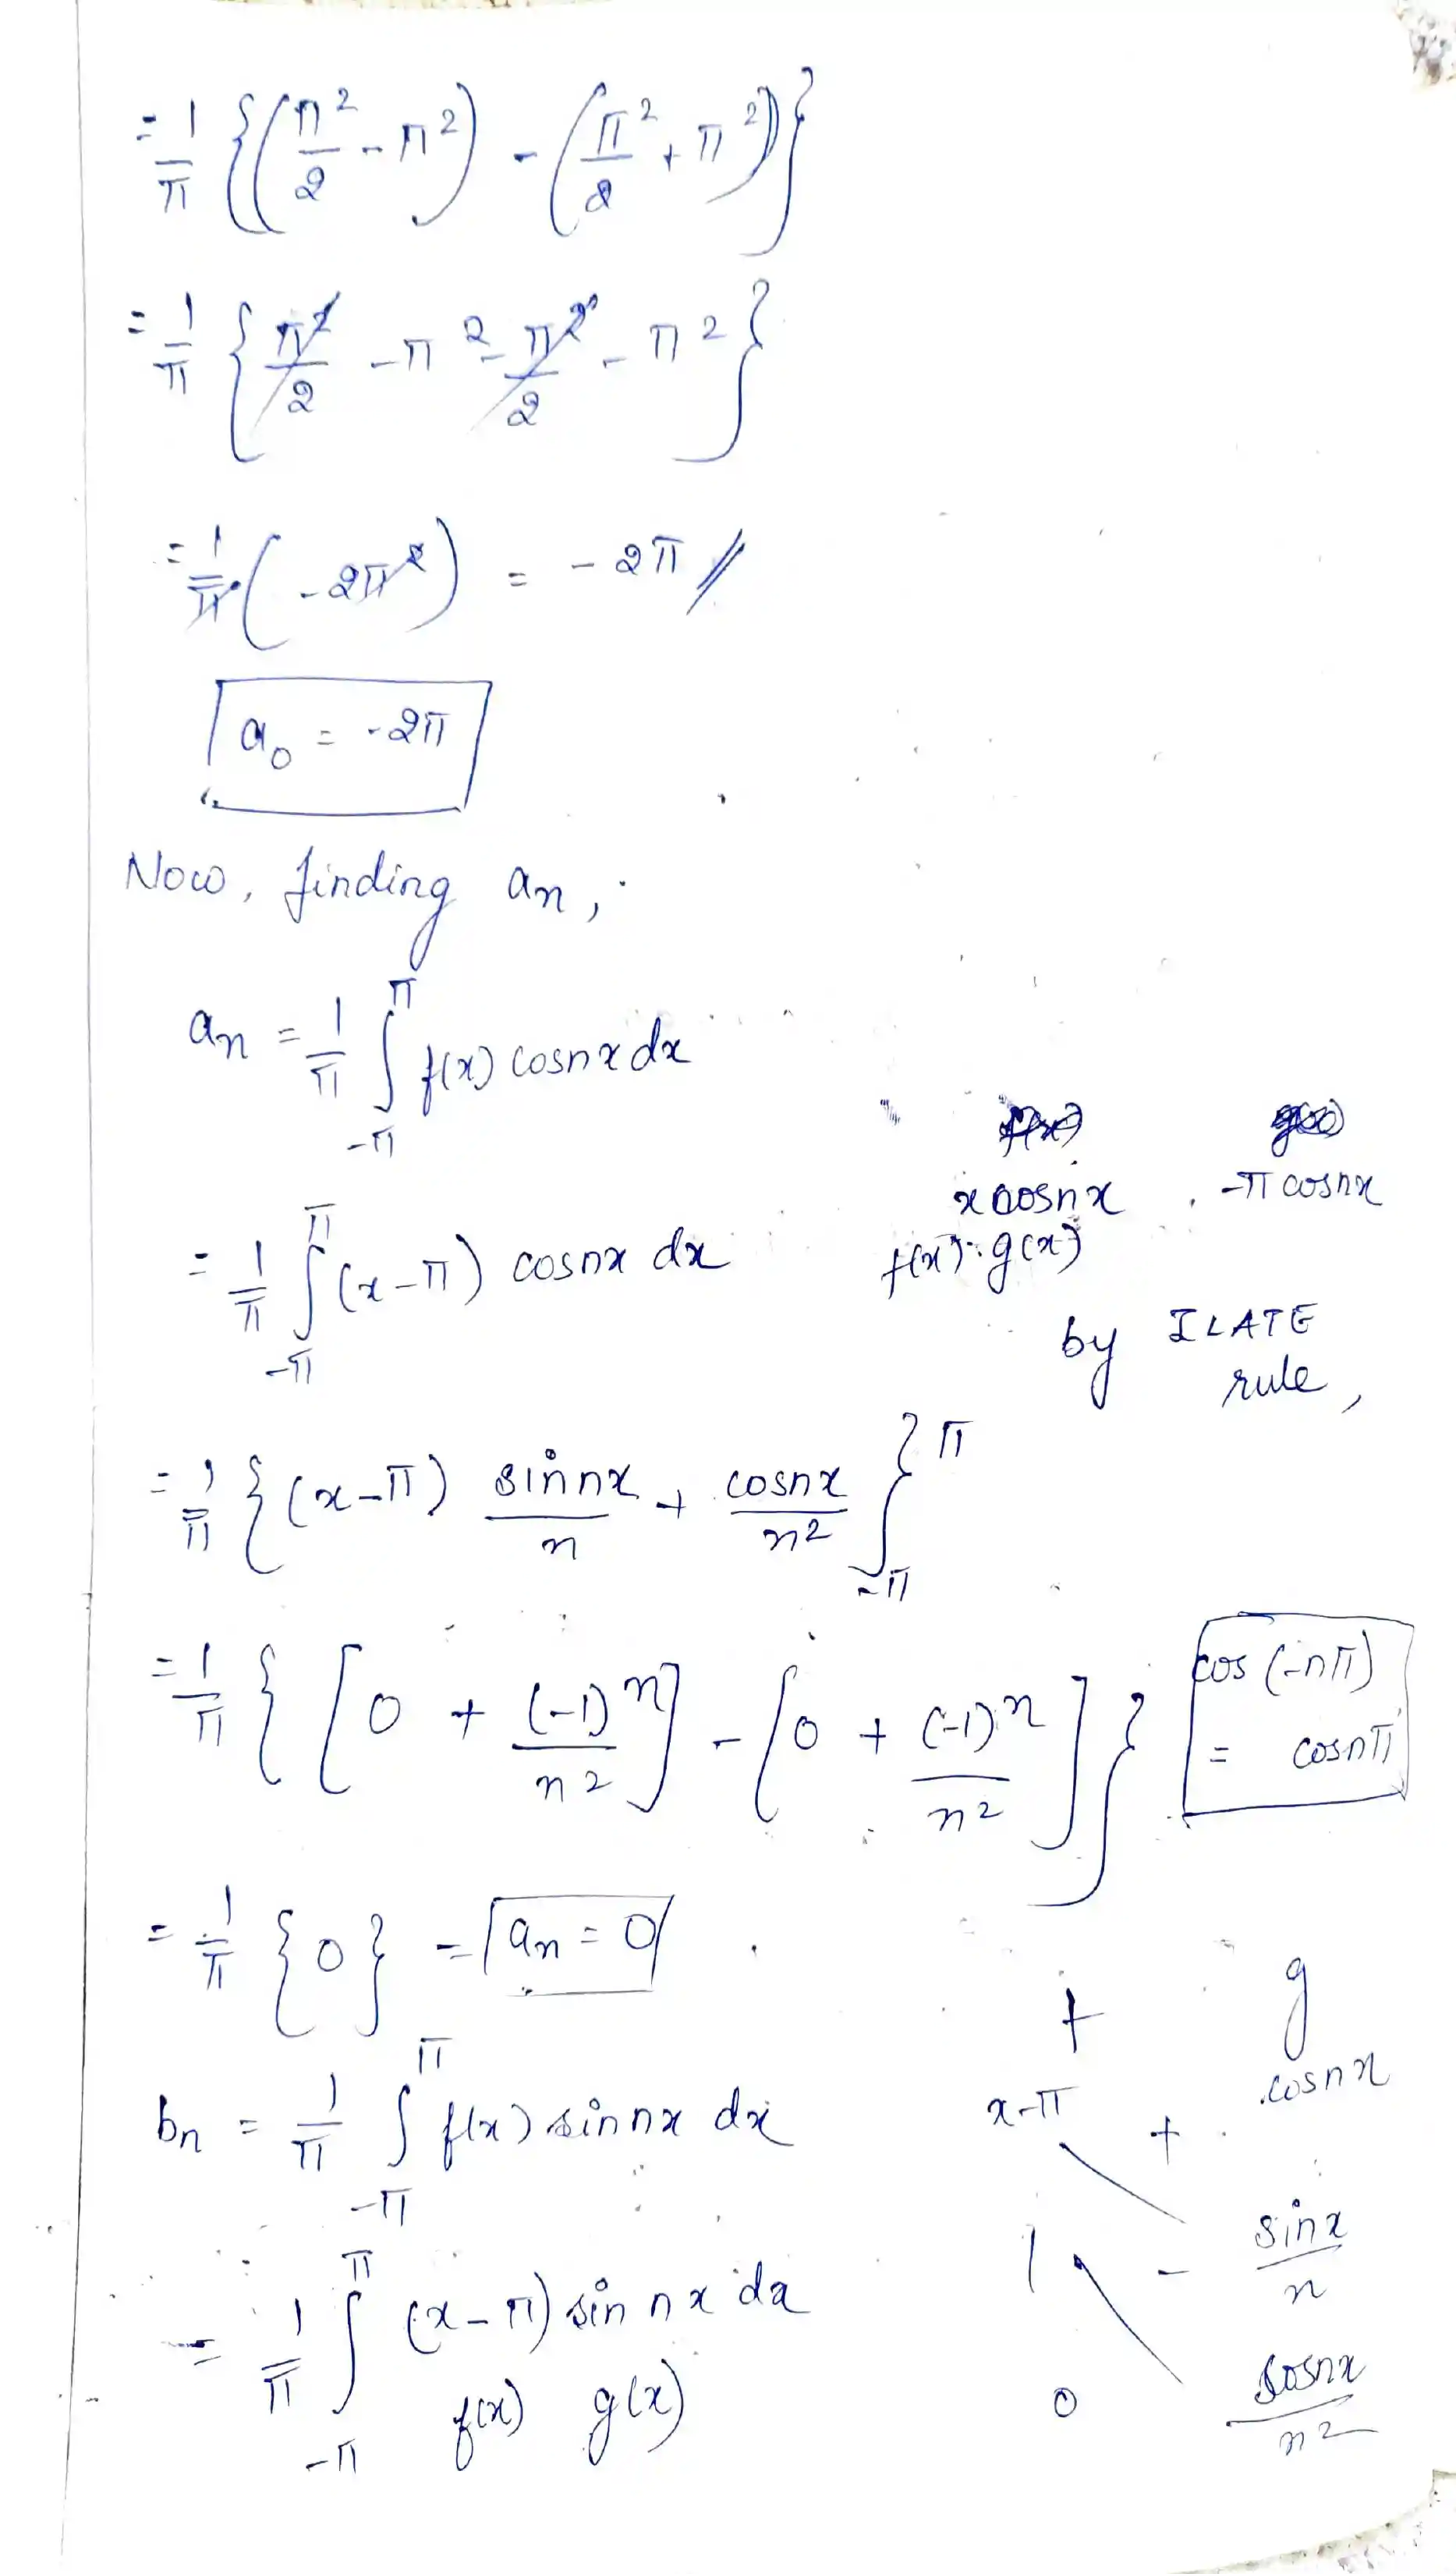 = 1/π {(π²/2 - π²) - (π²/2 + π²)}
= 1/π {π²/2 - π² - π²/2 - π²}
= 1/π (-2π²) = -2π //
a₀ = -2π
Now, finding an,
an = 1/π ∫_{-π}^{π} f(x) cosnx dx
x cosnx , -π cosnx
= 1/π ∫_{-π}^{π} (x-π) cosnx dx
f(x) · g(x)
by ILATE
rule,
= 1/π {(x-π) sin nx/n + cosnx/n²}_{-π}^{π}
= 1/π {[0 + (-1)ⁿ/n²] - [0 + (-1)ⁿ/n²]}
cos (-nπ)
= cosnπ
= 1/π {0} = an = 0
bn = 1/π ∫_{-π}^{π} f(x) sin nx dx
= 1/π ∫_{-π}^{π} (x-π) sin nx dx
f(x) g(x)
g
x-π + cosnx
1 - sinx/n
0 cosnx/n²